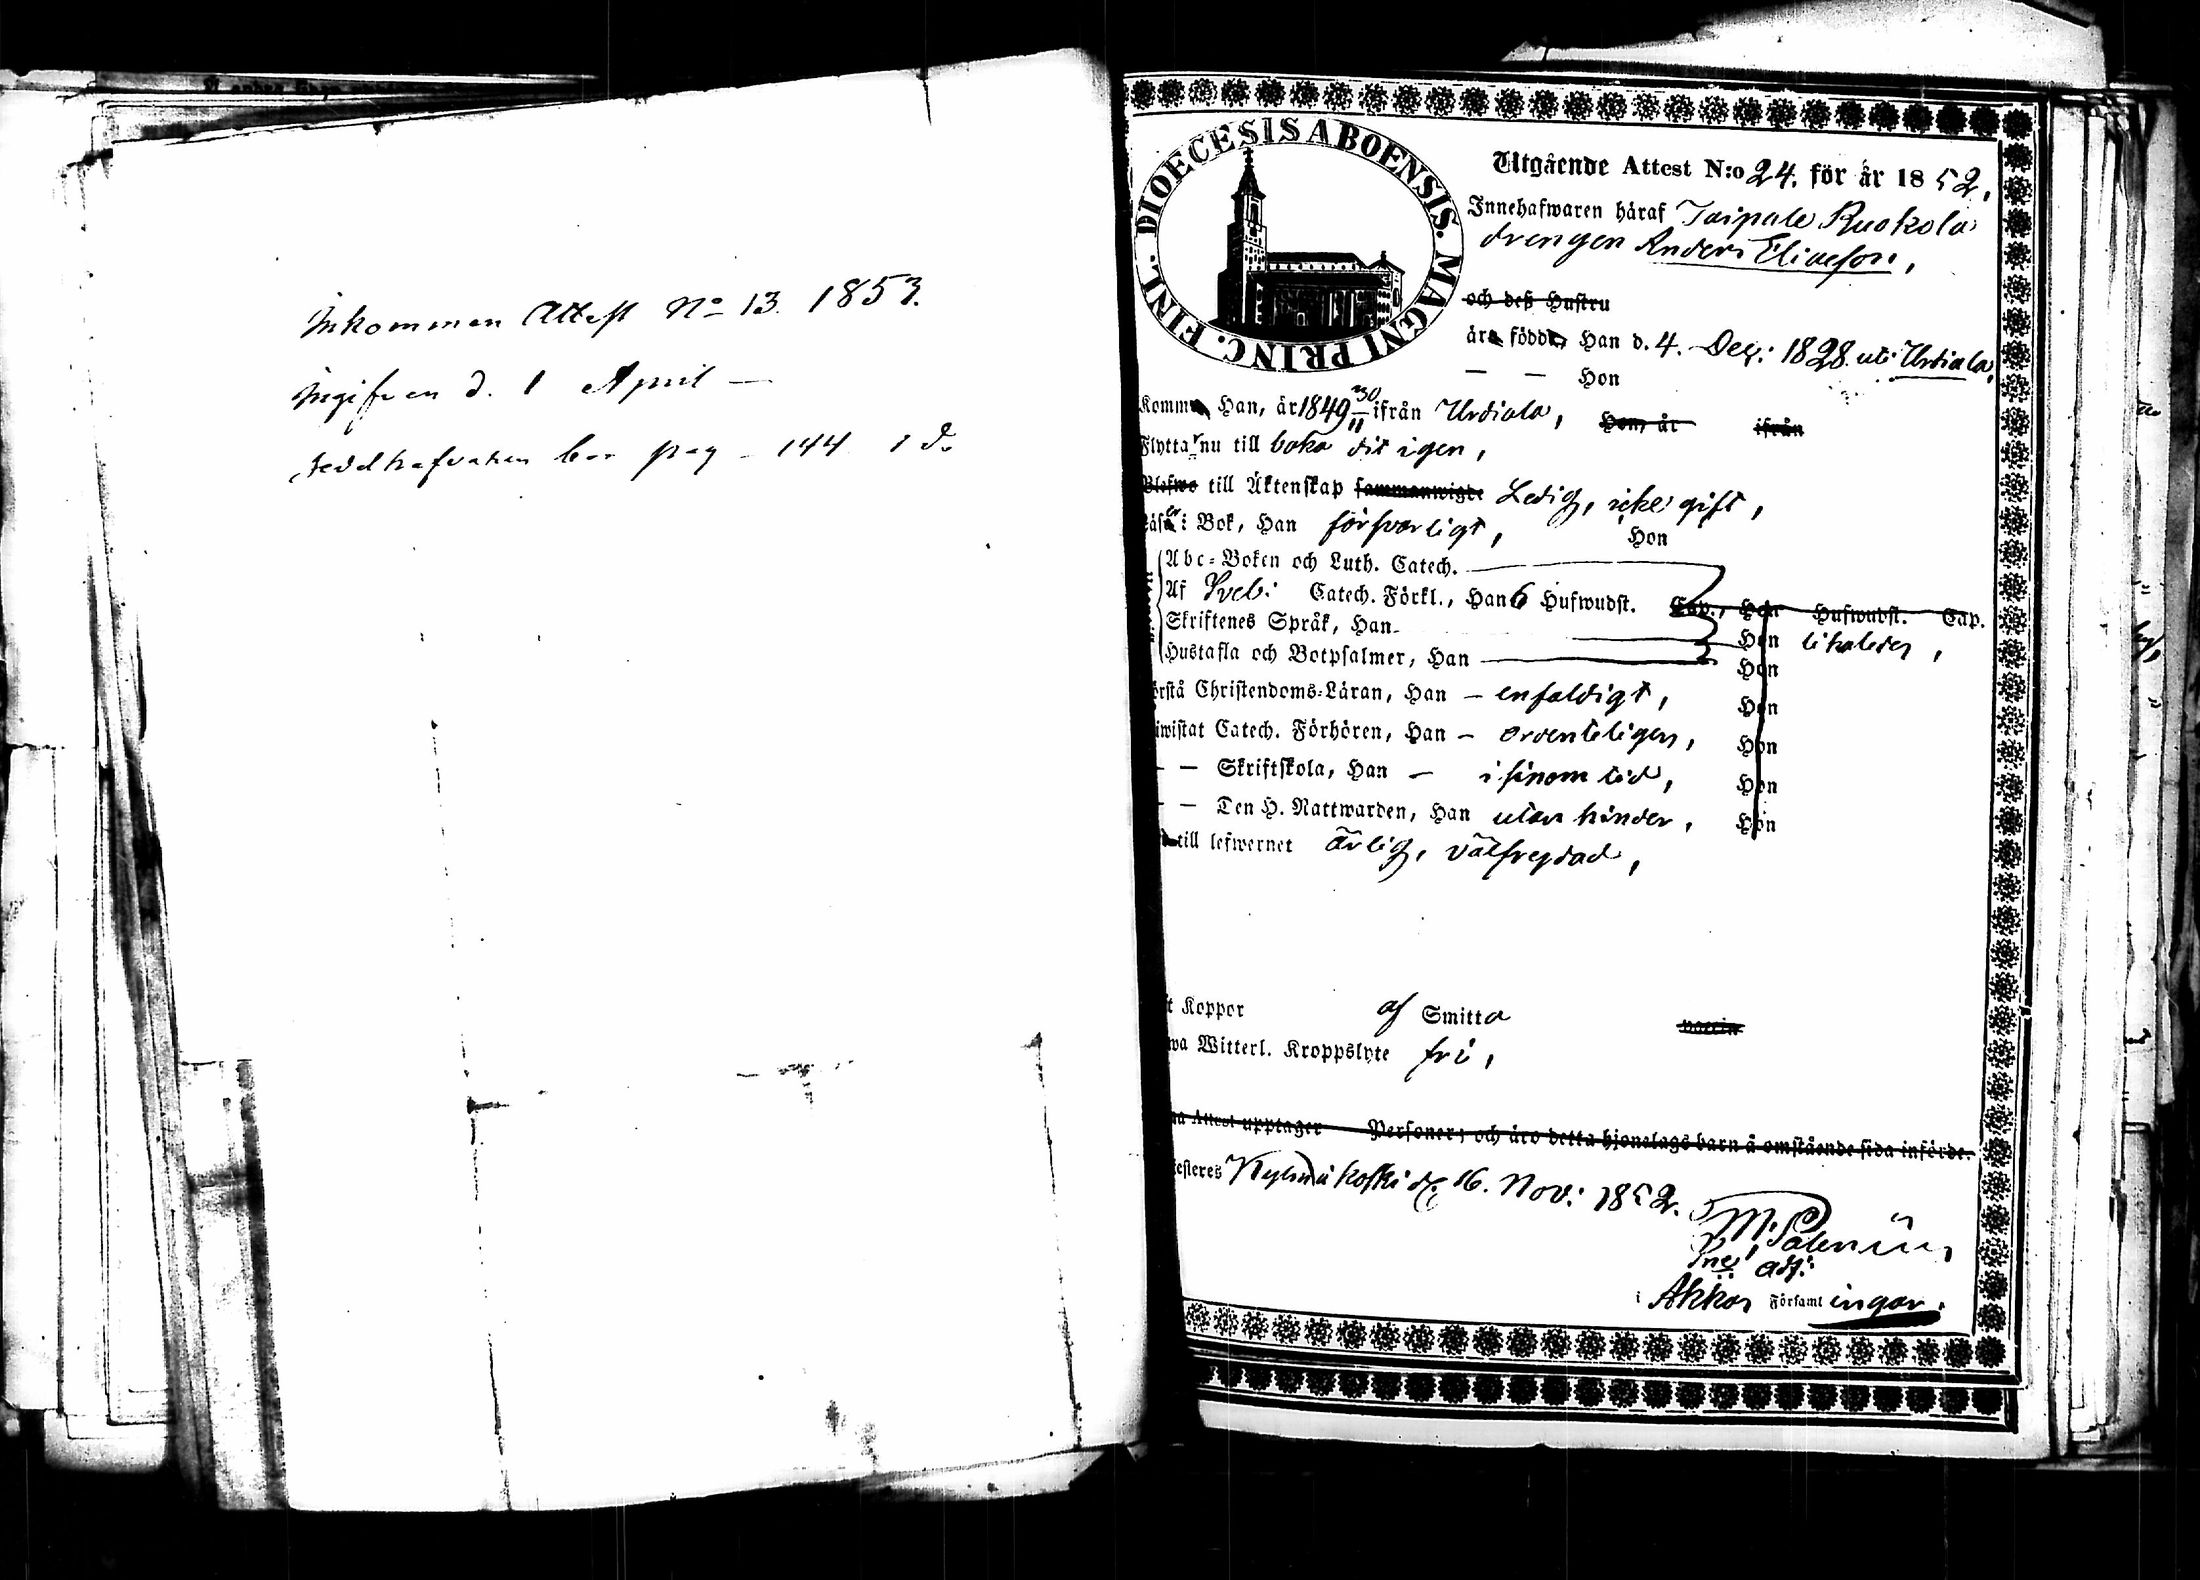 Inkommen Attest No 13. 1853.
Ingifven d. 1 April —
bor pag. 144
DIOECESIS ABOENSIS. MAGNI PRINC. FINL.
Utgående Attest N:o 24. för år 1852.
Innehafwaren häraf Taipale Ruokola
drengen Anders Eliaeson,
och deß Hustru
äro födde, Han d. 4. Dec: 1828. uti Urdiala,
— — Hon
Komm Han, år 1849 30/11 ifrån Urdiala, Hon, år ifrån
Flyttar nu till baka dit igen,
Blefwo till Äktenskap sammanwigde Ledig, icke gift,
i Bok, Han försvarligt, Hon
Abc-Boken och Luth. Catech.
Af Sveb: Catech. Förkl., Han 6 Hufwudst. Cap., Hon Hufwudst. Cap.
Skriftenes Språk, Han Hon likaledes,
Hustafla och Botpsalmer, Han Hon
örstå Christendoms-Läran, Han — enfaldigt, Hon
iwistat Catech. Förhören, Han — ordenteligen, Hon
— — Skriftskola, Han — i sinom tid, Hon
— — Den H. Nattwarden, Han utan hinder, Hon
till lefwernet ärlig, välfrejdad,
t Koppor af Smitta
wa Witterl. Kroppslyte fri,
na Attest upptager Personer; och äro detta hjonelags barn å omstående sida införde.
testeres Kylmäkoski d. 16. Nov: 1852.
adj:
i Akkas Församlingar.